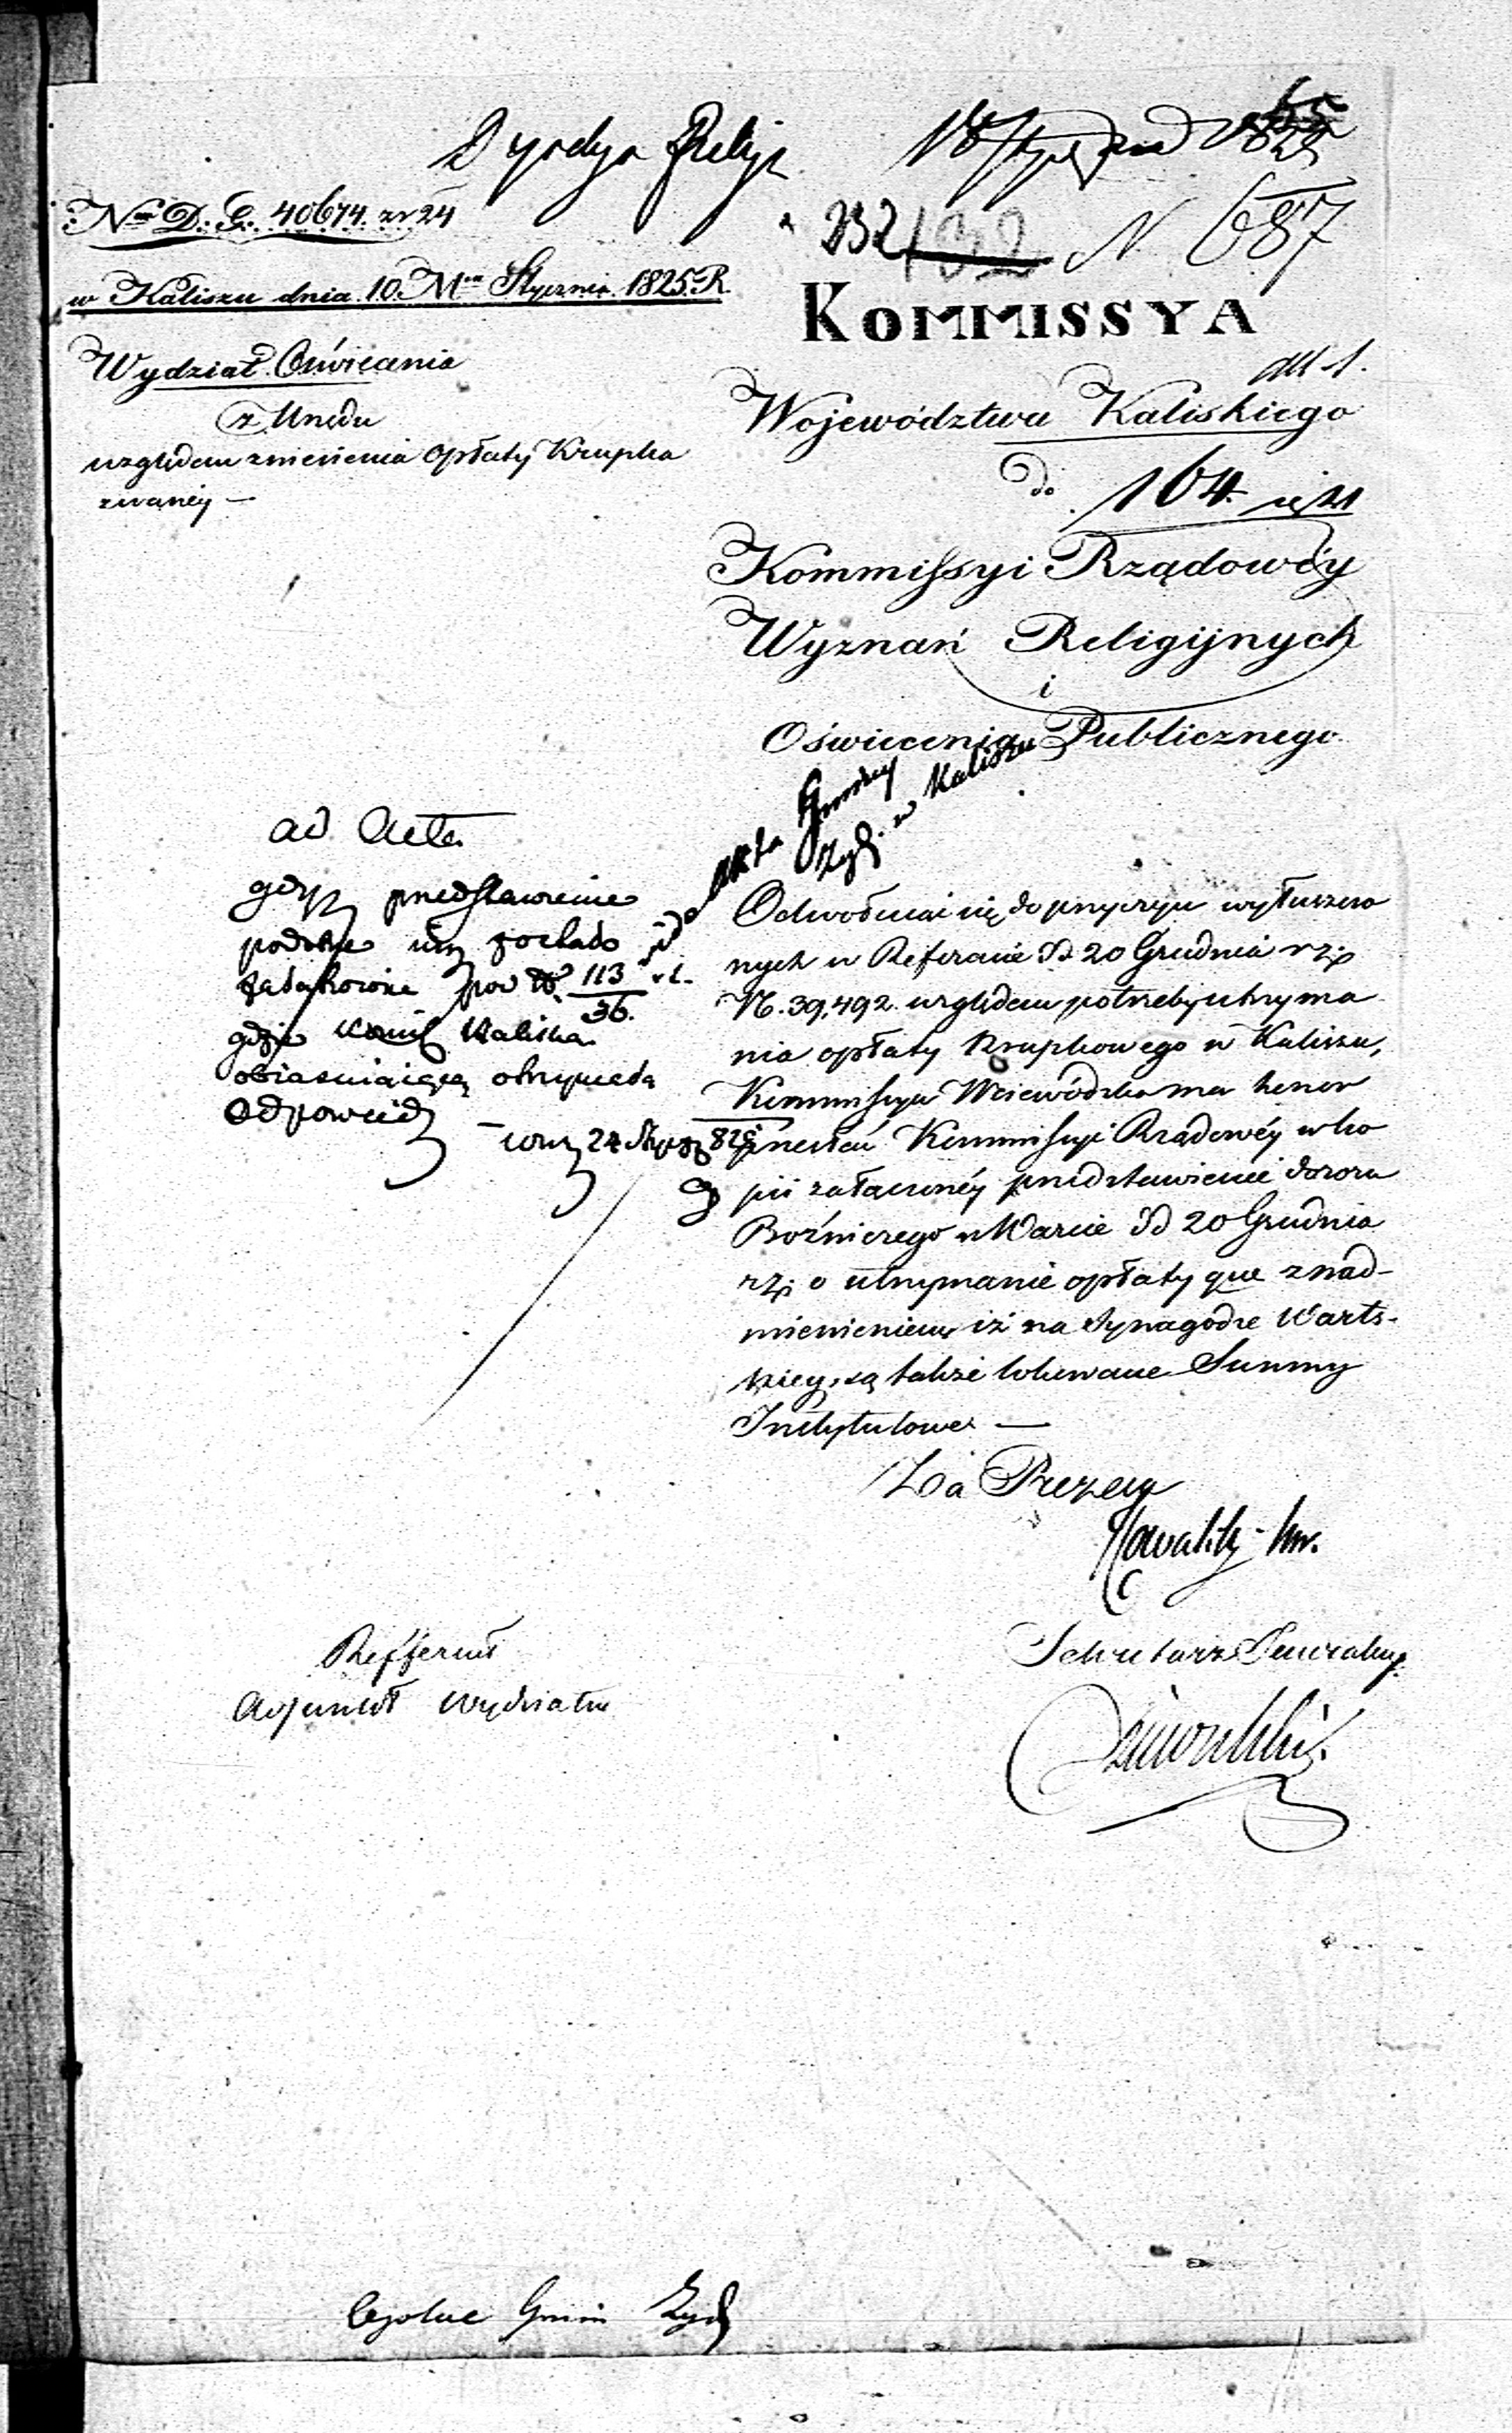 Dyrekcya Religi
65
18 Stycznia 1825
Nro D. G. 40674. z r 24
232 132 N. 687
w Kaliszu dnia 10. Mca Stycznia 1825. R.
KOMMISSYA
Wydział Oświecenia
z Urzędu
względem zniesienia opłaty Krupka
zwanéy —
Województwa Kaliskiego
do
164.
Kommissyi Rządowéy
Wyznań Religijnych
i
Oświecenia Publicznego
do akta Gminy
Żyd. w Kaliszu
ad Acta
gdyż przedstawienie
podobne iuż zostało
załatwione pod N. 113/36
gdzie Kommis Kaliska
obiasniaiącą otrzymała
odpowiedź
— 24 Stycz 825
Odwołuiąc się do przyczyn wyłuszczo
nych w Raporcie dd 20 Grudnia r z
N. 39,492. względem potrzeby utrzyma
nia opłaty Krupkowego w Kaliszu,
Kommissya Woiewódzka ma honor
przesłać Kommissyi Rządowéy w ko
pii załączonéy przedstawienie dozoru
Bożniczego w Warcie dd 20 Grudnia
r z o utrzymanie opłaty que z nad-
mienieniem iż na Synagodze Warts-
kiey są także lokowane Summy
Instytutowe —
Za Prezesa
Sekretarz Generalny
Refferent
Adjunkt Wydziału
Ogolne Gmin Żyd